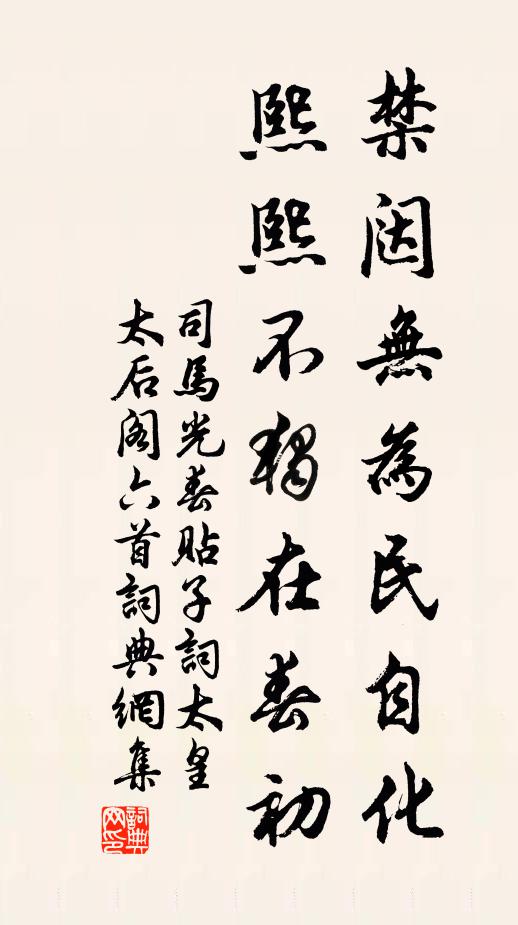 禁闥無為民自化
熙熙不獨在春初
司馬光春貼子詞太皇
太后閣六首詞典網集
詞典
网印